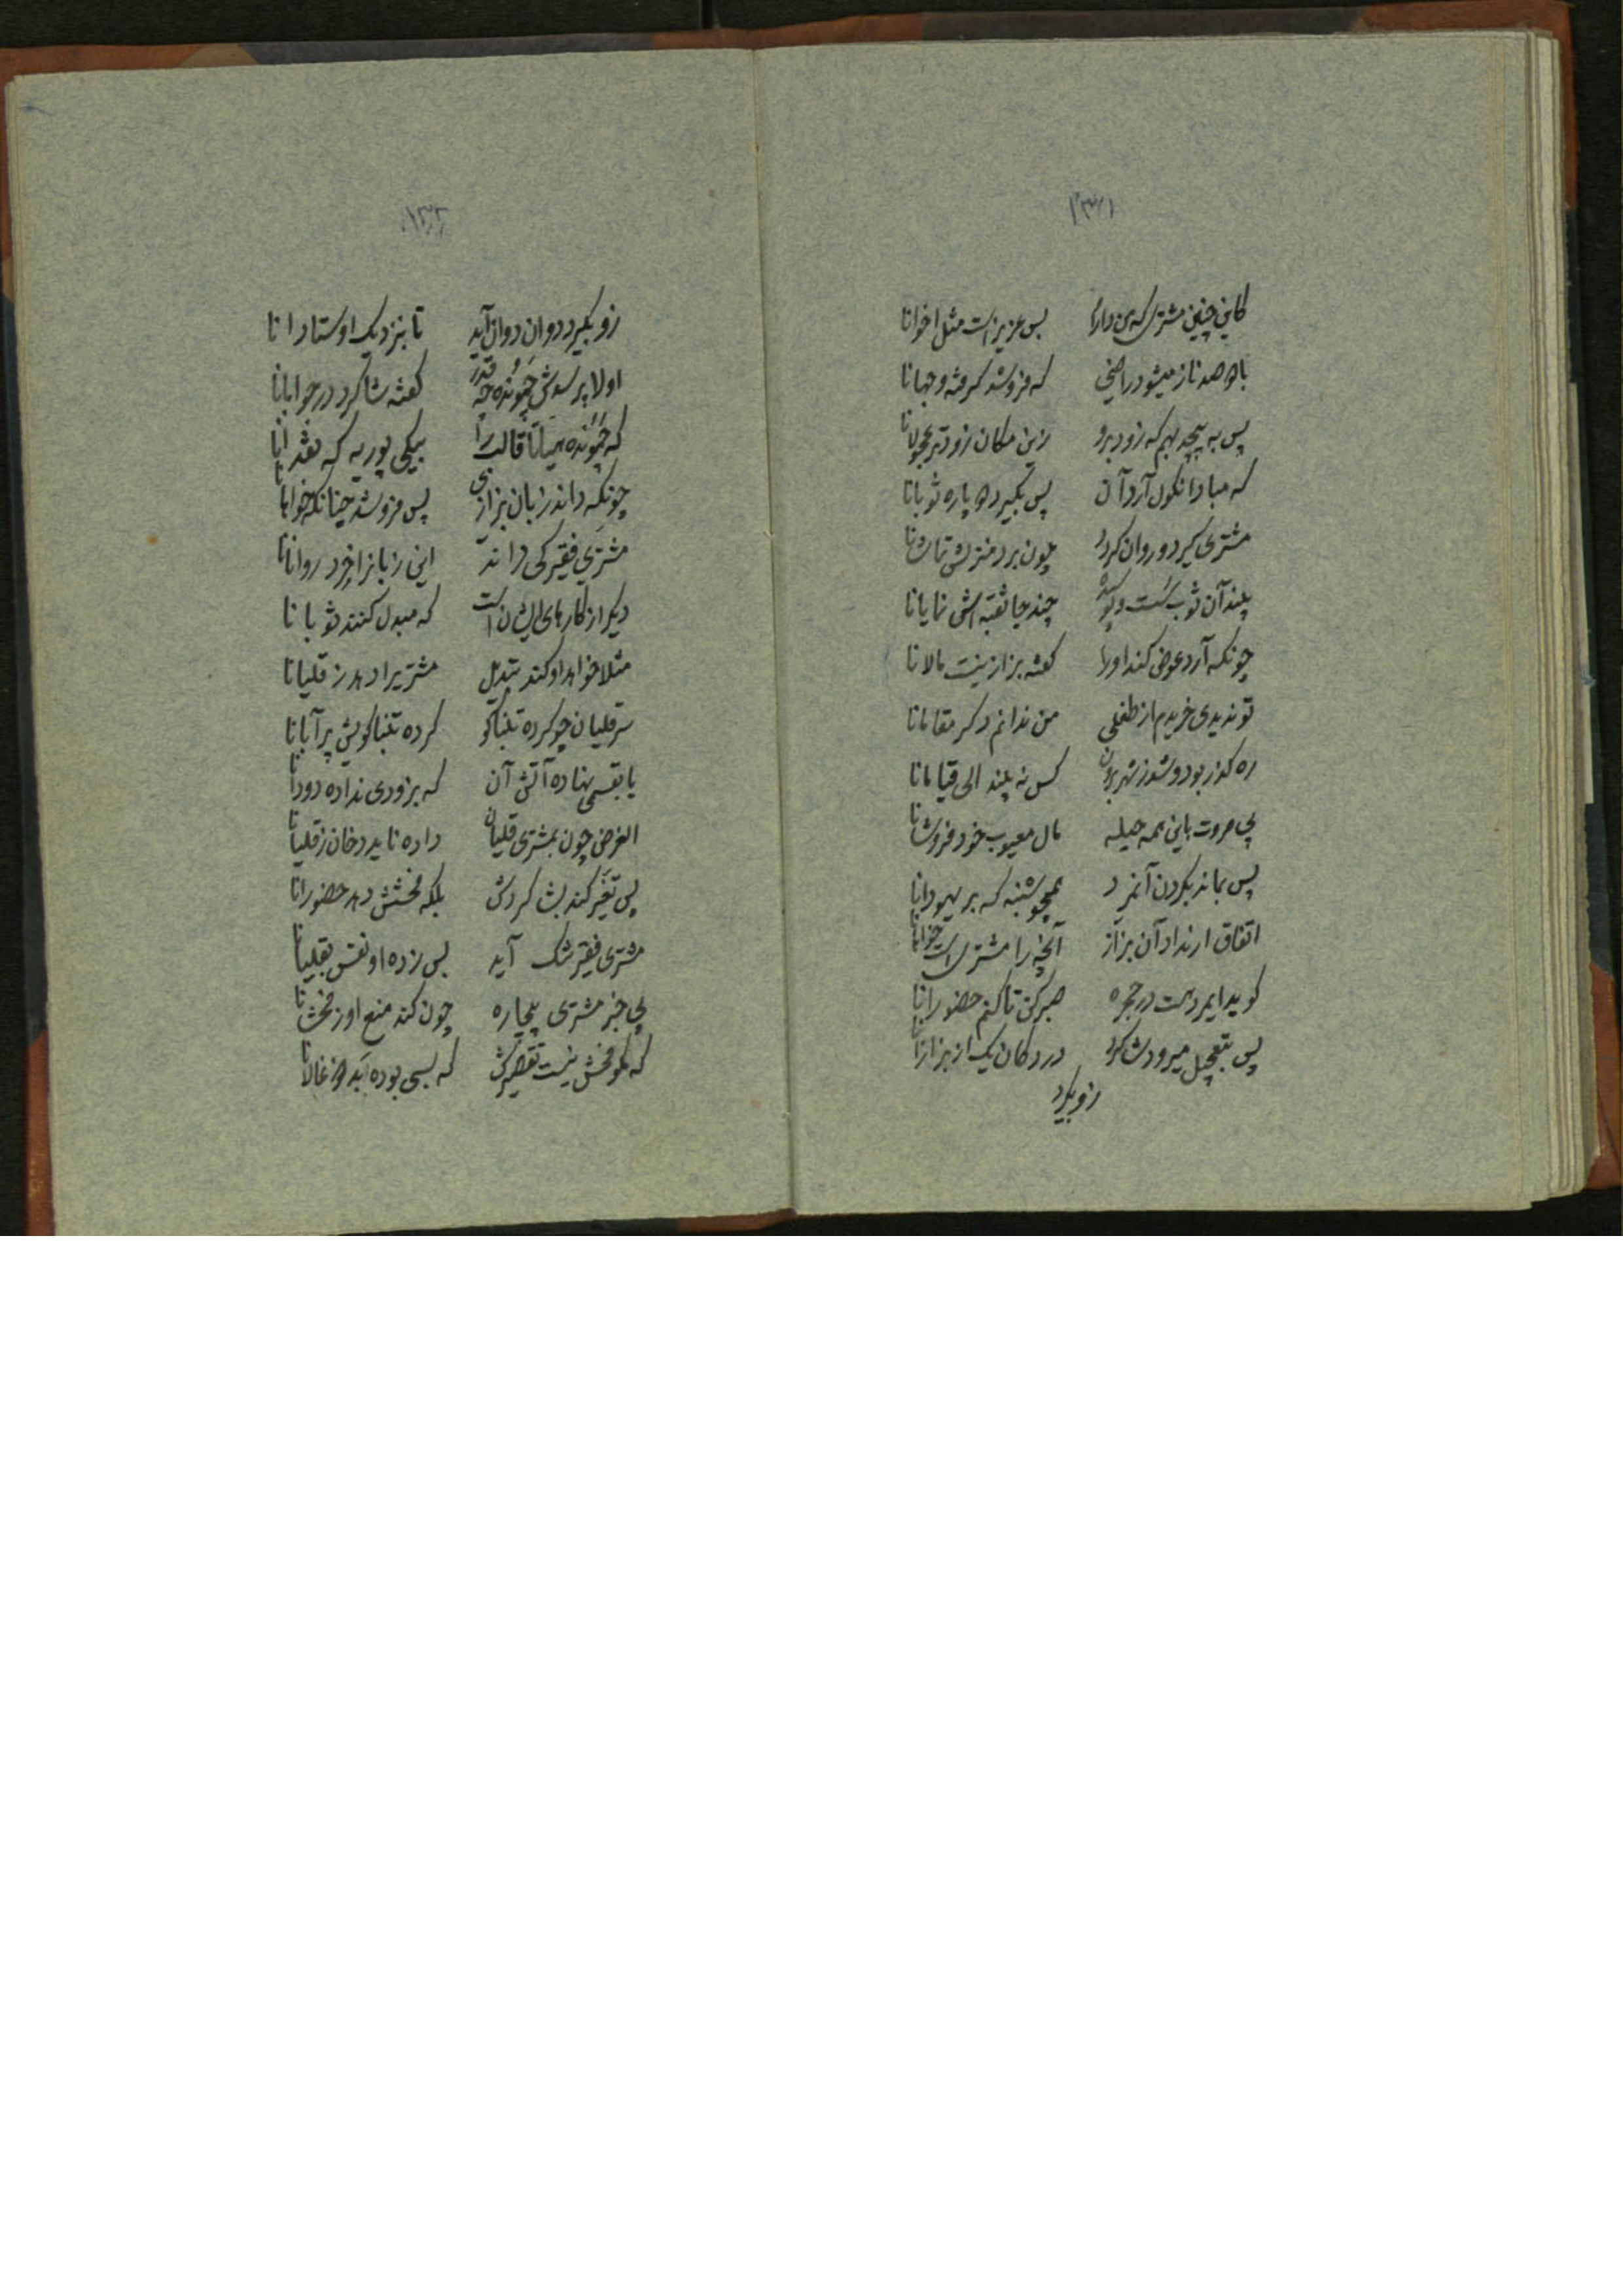 ۱۳۱
کاین چنین مشتری که من دارم بس عزیز است مثل اخوانا
با دو صد ناز میشود راضی که فروشد گرفته وجهانا
پس به بیچه بهم که زود برو زین مکان زودتر عجولانا
که مبادا نکول آرد آن پس بگیرد دو پاره ثوبانا
مشتری گیرد و روان گردد چون برد منزلش تماشانا
بیند آن ثوب سست و پوسیده چند جا ثقبه اش نمایانا
چونکه آرد عوض کند او را گفته بزاز نیست مالانا
تو ندیدی خریدم از طفلی من ندانم دگر مقامانا
ره گذر بود و شد ز شهر برون کس نه بیند الی قیامانا
بی مروت باین همه حیله مال معیوب خود فروشانا
پس بماند بگردن آنمرد همچو شنبه که بر یهودانا
اتفاق ار نداد آن بزاز آنچه را مشتری است خواهانا
گوید ایمرد هست در حجره صبر کن تا کنم حضورانا
پس بتعجیل میرود شاگرد در دکان یک از بزازانا
زو بگیرد
۱۳۲
زو بگیرد دوان دوان آید تا بنزدیک اوستادانا
اولا پرسدش چمونده چه قدر گفته شاگرد در جوابانا
که چمونده میانا قالت را بیکی پوریه که نقدانا
چونکه داند زبان بزازی پس فروشد چنانکه خواهانا
مشتری فقیر کی داند این زبانرا خرد روانانا
دیگر از کارهای ایشان است که مبدل کنند ثوبانا
مثلا خواهد او کند تبدیل مشتریرا دهد ز قلیانا
سر قلیان چو کرده تنباکو کرده تنباکویش پر آبانا
یا بقسمی نهاده آتش آن که بزودی نداده دودانا
الغرض چون بمشتری قلیان داده ناید دخان ز قلیانا
پس تغیر کند بشاگردش بلکه فحشش دهد حضورانا
مشتری فقیر تنک آید بس زده او نفس بقلیانا
بی خبر مشتری بیچاره چون کند منع او ز فحشانا
که مگو فحش نیست تقصیرش که بسی بوده